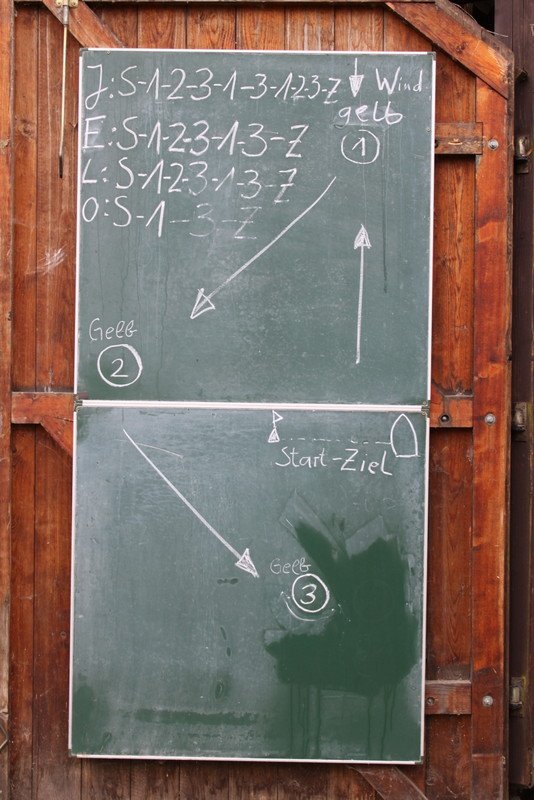 J: S-1-2-3-1-3-1-2-3-Z
Wind
gelb
1
E: S-1-2-3-1-3-Z
L: S-1-2-3-1-3-Z
O: S-1-3-Z
Gelb
2
Start-Ziel
Gelb
3